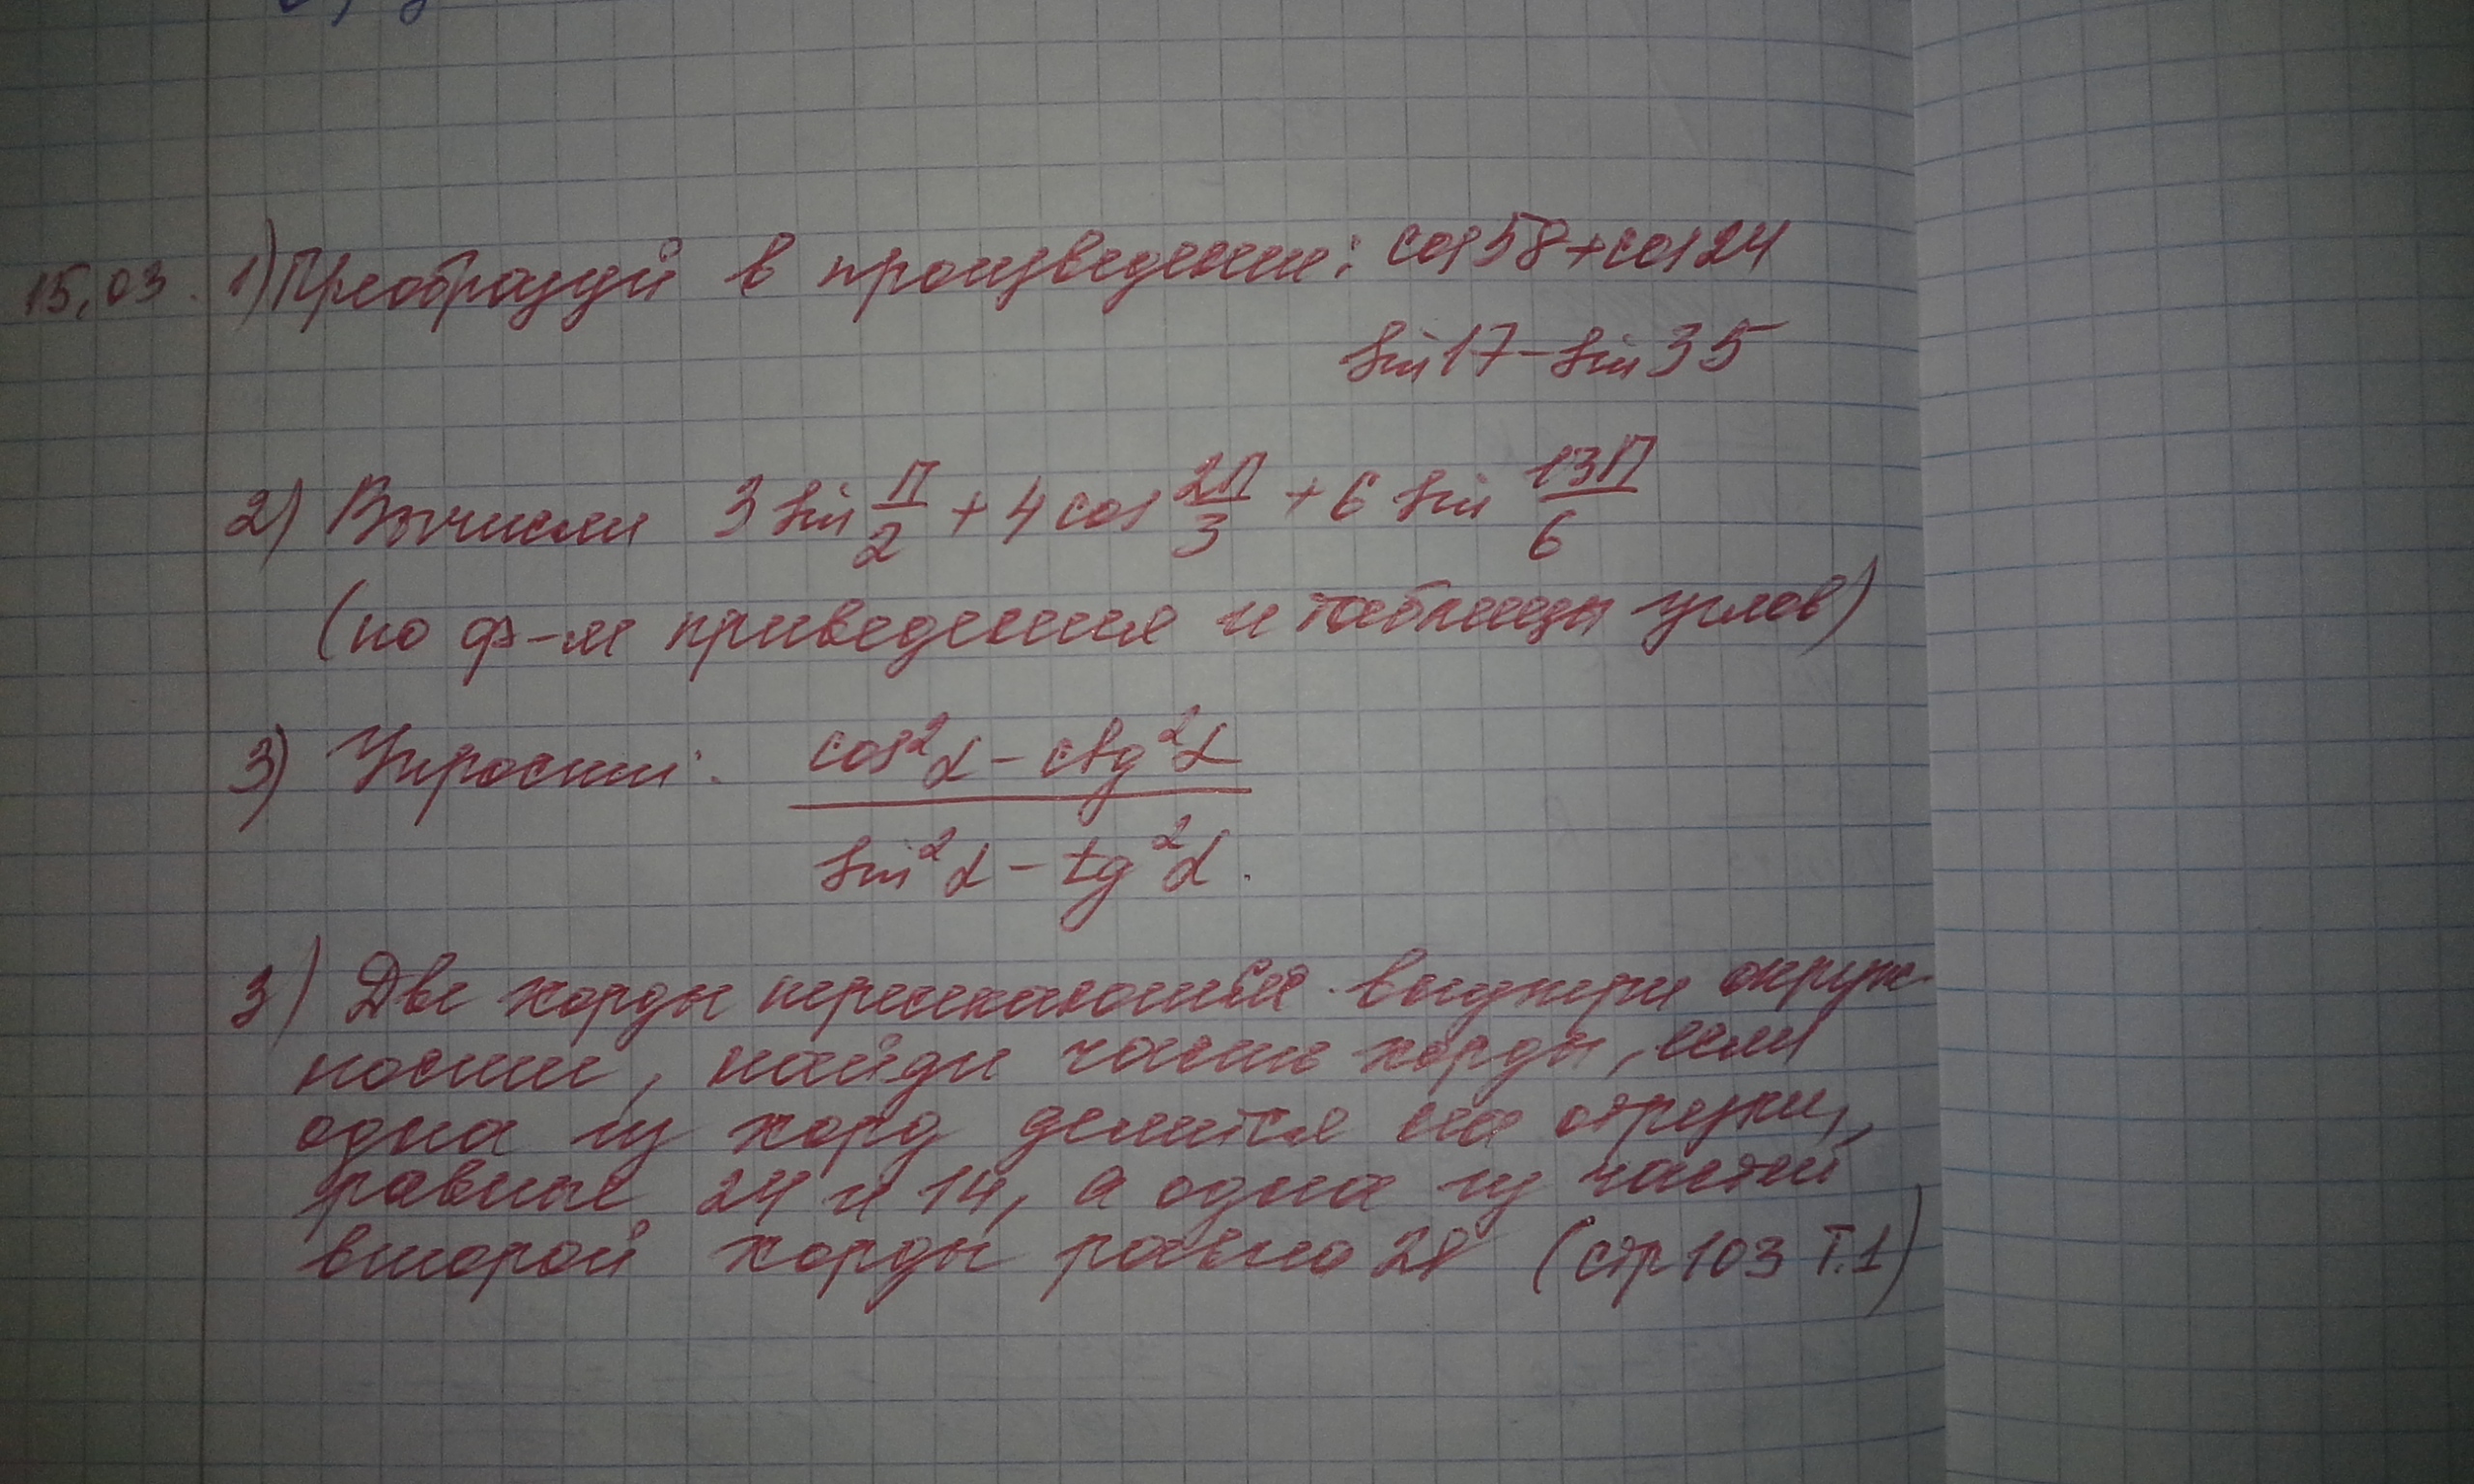 15.03. 1) Преобразуй в произведении: cos58+cos24
sin17-sin35
2) Вычисли 3 sin π/2 + 4 cos 2π/3 + 6 sin 13π/6
(по ф-м приведения и таблицы углов)
3) Упрости: (cos²α - ctg²α) / (sin²α - tg²α).
3) Две хорды пересекаются внутри окруж-
ности, найди часть хорды, если
одна из хорд делится на отрезки,
равные 24 и 14, а одна из частей
второй хорды равна 28 (стр 103 т.1)